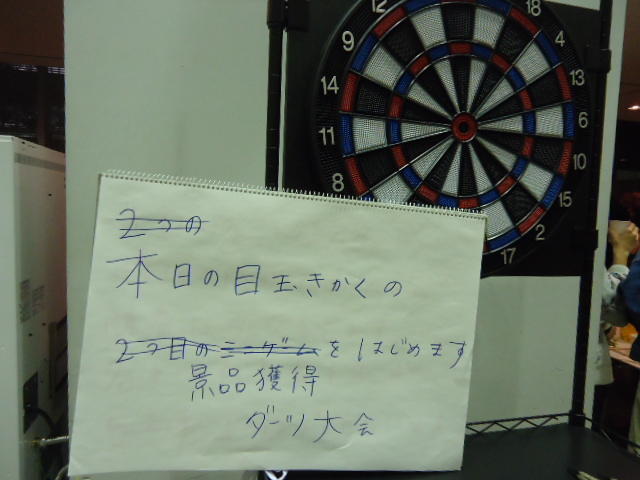 2つの
本日の目玉きかくの
2つ目のミニゲームをはじめます
景品獲得
ダーツ大会
12
18
9
4
14
13
11
6
8
10
15
2
17